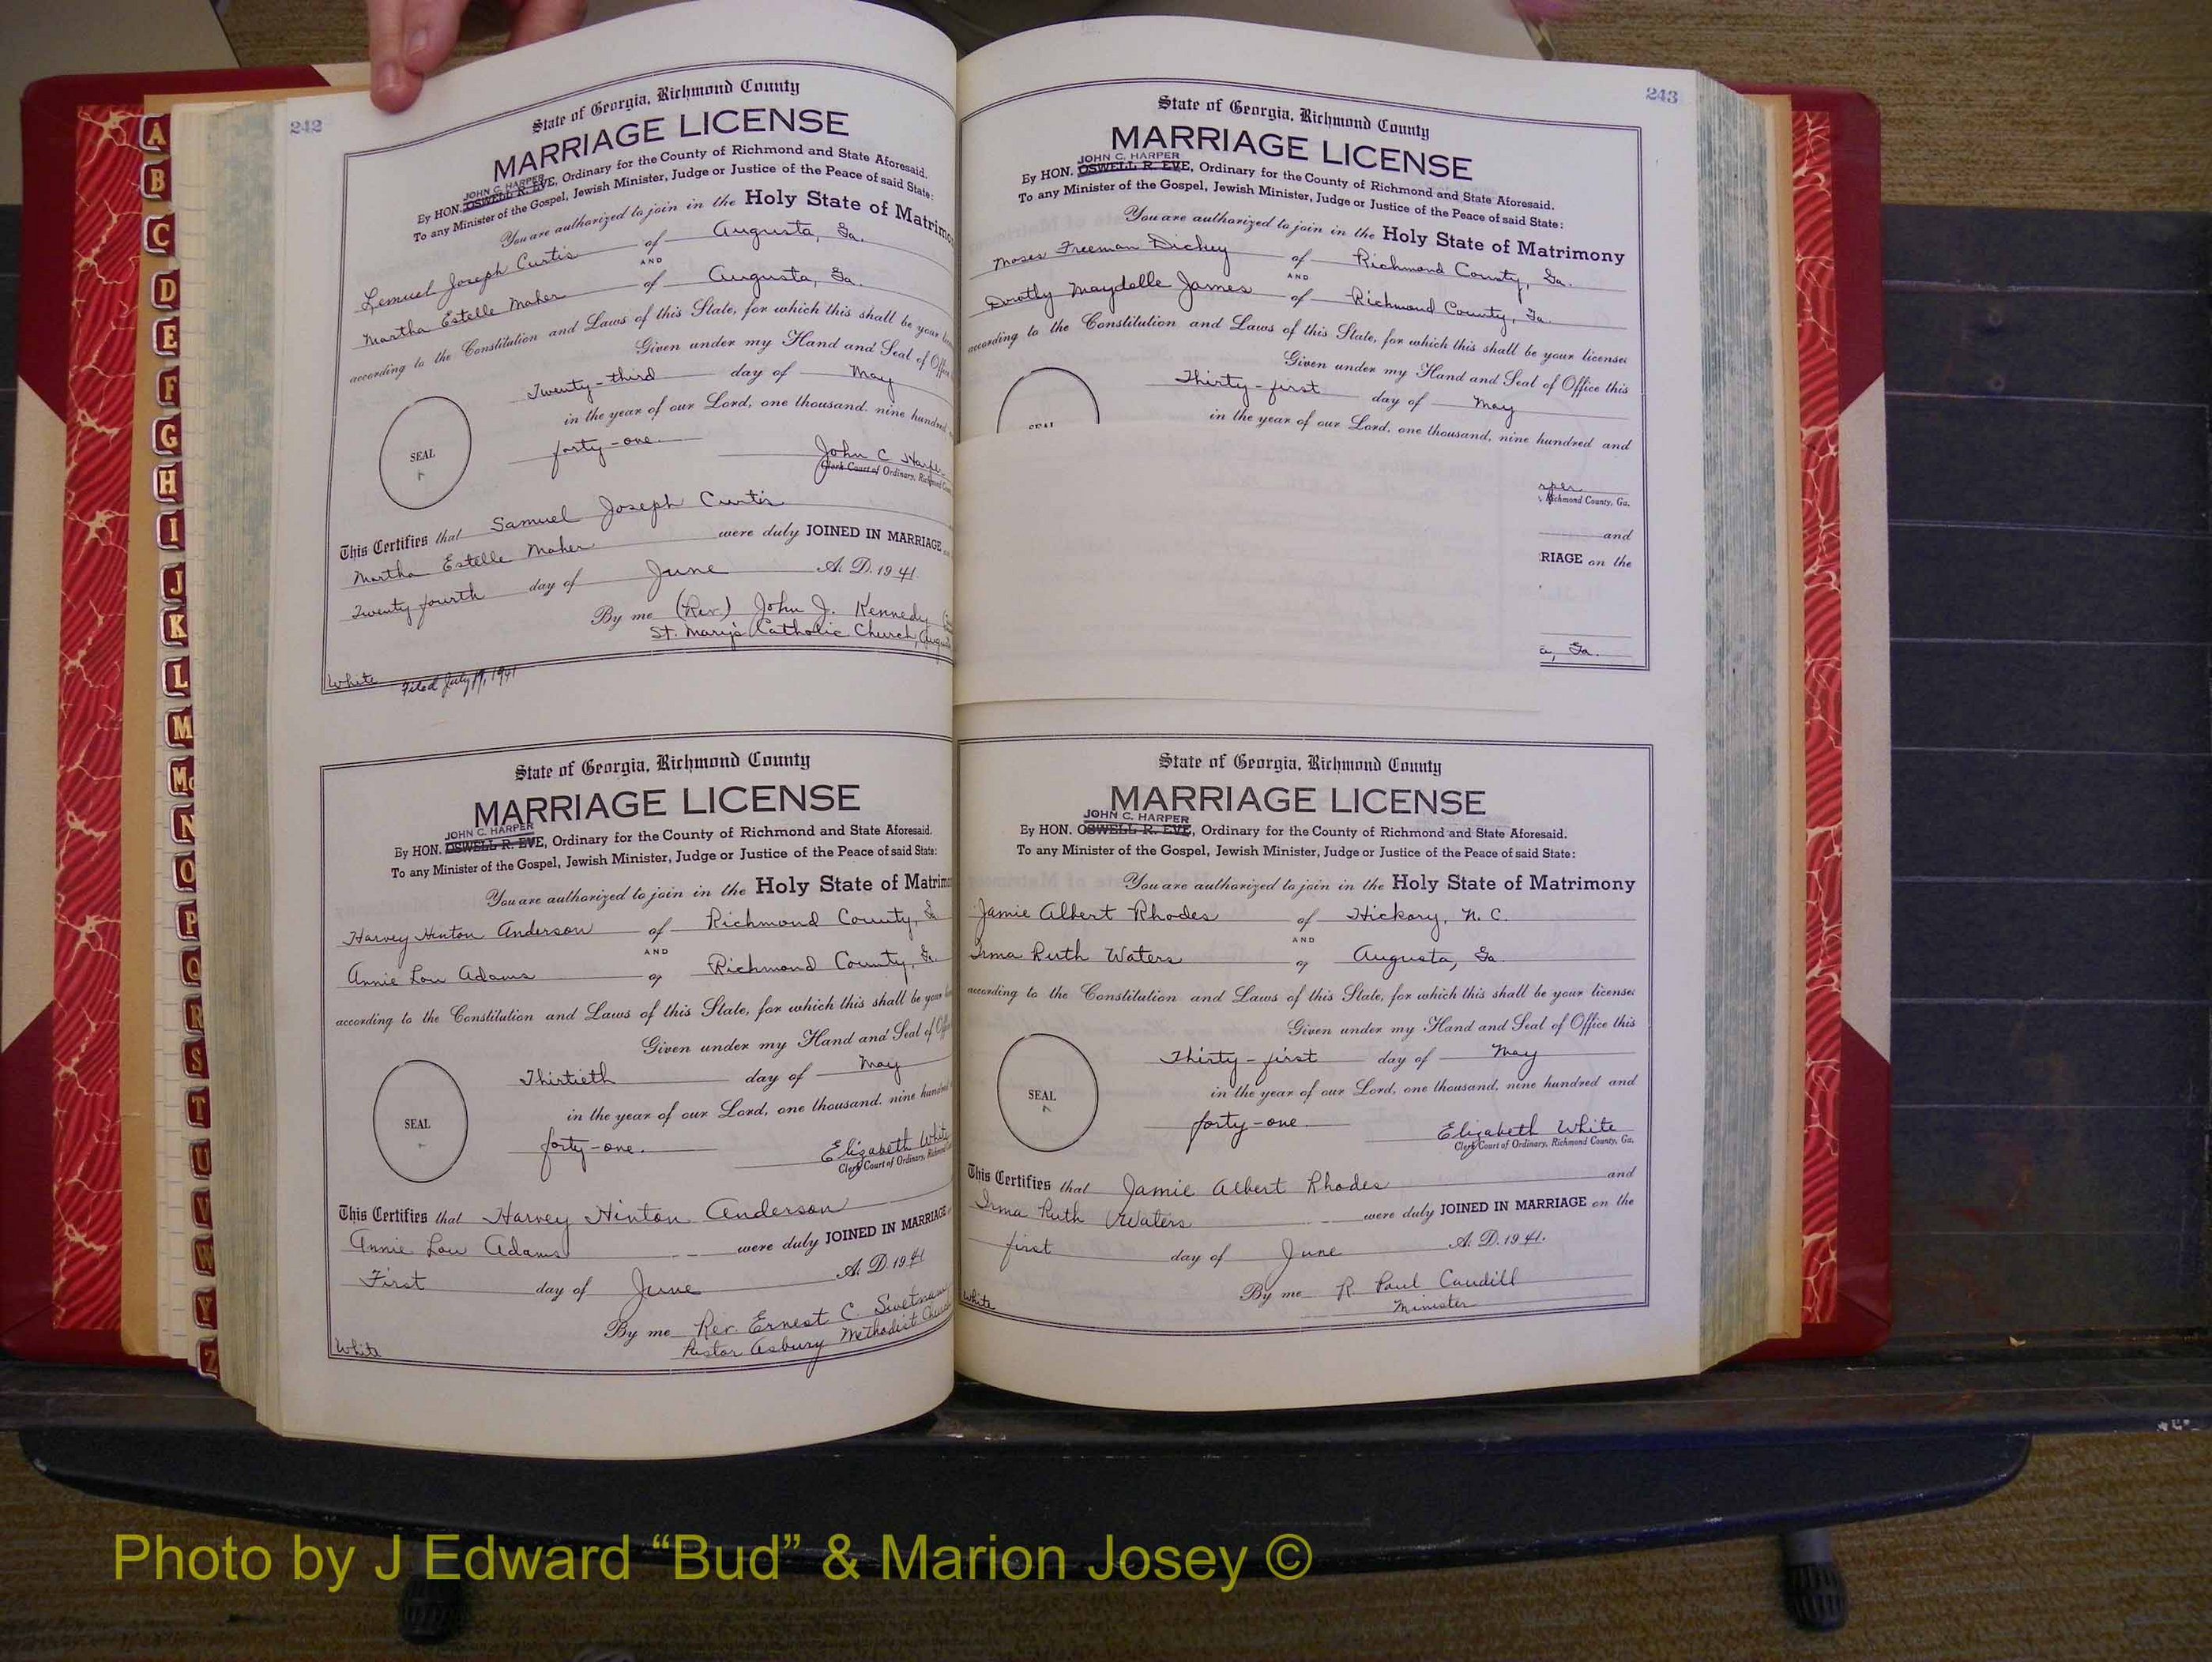 242
State of Georgia, Richmond County
MARRIAGE LICENSE
JOHN C. HARPER
By HON. OSWELL R. EVE, Ordinary for the County of Richmond and State Aforesaid.
To any Minister of the Gospel, Jewish Minister, Judge or Justice of the Peace of said State:
You are authorized to join in the Holy State of Matrimon
Lemuel Joseph Curtis of Augusta, Ga.
AND
Martha Estelle Maher of Augusta, Ga.
according to the Constitution and Laws of this State, for which this shall be your
Given under my Hand and Seal of Office
Twenty-third day of May
in the year of our Lord, one thousand, nine hundred
forty-one.
SEAL
John C Harper
Clerk Court of Ordinary, Richmond
This Certifies that Samuel Joseph Curtis
Martha Estelle Maher were duly JOINED IN MARRIAGE
Twenty fourth day of June A. D. 1941
By me (Rev.) John J. Kennedy
St. Mary's Catholic Church, Augusta
White Filed July 19, 1941
State of Georgia, Richmond County
MARRIAGE LICENSE
JOHN C. HARPER
By HON. OSWELL R. EVE, Ordinary for the County of Richmond and State Aforesaid.
To any Minister of the Gospel, Jewish Minister, Judge or Justice of the Peace of said State:
You are authorized to join in the Holy State of Matrimon
Harvey Hinton Anderson of Richmond County, G
AND
Annie Lou Adams of Richmond County, Ga.
according to the Constitution and Laws of this State, for which this shall be your
Given under my Hand and Seal of Office
Thirtieth day of May
in the year of our Lord, one thousand, nine hundred
forty-one.
SEAL
Elizabeth White
Clerk Court of Ordinary, Richmond
This Certifies that Harvey Hinton Anderson
Annie Lou Adams were duly JOINED IN MARRIAGE
First day of June A. D. 1941
By me Rev. Ernest C. Swetnam
Pastor Asbury Methodist Church
White
243
State of Georgia, Richmond County
MARRIAGE LICENSE
JOHN C. HARPER
By HON. OSWELL R. EVE, Ordinary for the County of Richmond and State Aforesaid.
To any Minister of the Gospel, Jewish Minister, Judge or Justice of the Peace of said State:
You are authorized to join in the Holy State of Matrimony
Moses Freeman Dickey of Richmond County, Ga.
AND
Dorothy Maydelle James of Richmond County, Ga.
according to the Constitution and Laws of this State, for which this shall be your license:
Given under my Hand and Seal of Office this
Thirty-first day of May
in the year of our Lord, one thousand, nine hundred and
SEAL
rper
Richmond County, Ga.
and
RIAGE on the
a, Ga.
State of Georgia, Richmond County
MARRIAGE LICENSE
JOHN C. HARPER
By HON. OSWELL R. EVE, Ordinary for the County of Richmond and State Aforesaid.
To any Minister of the Gospel, Jewish Minister, Judge or Justice of the Peace of said State:
You are authorized to join in the Holy State of Matrimony
Jamie Albert Rhodes of Hickory, N. C.
AND
Irma Ruth Waters of Augusta, Ga.
according to the Constitution and Laws of this State, for which this shall be your license:
Given under my Hand and Seal of Office this
Thirty-first day of May
in the year of our Lord, one thousand, nine hundred and
forty-one.
SEAL
Elizabeth White
Clerk Court of Ordinary, Richmond County, Ga.
This Certifies that Jamie Albert Rhodes and
Irma Ruth Waters were duly JOINED IN MARRIAGE on the
first day of June A. D. 1941.
By me R Paul Caudill
Minister
White
A
B
C
D
E
F
G
H
I
J
K
L
M
Mc
N
O
P
Q
R
S
T
U
V
W
Y
Z
Photo by J Edward “Bud” & Marion Josey ©